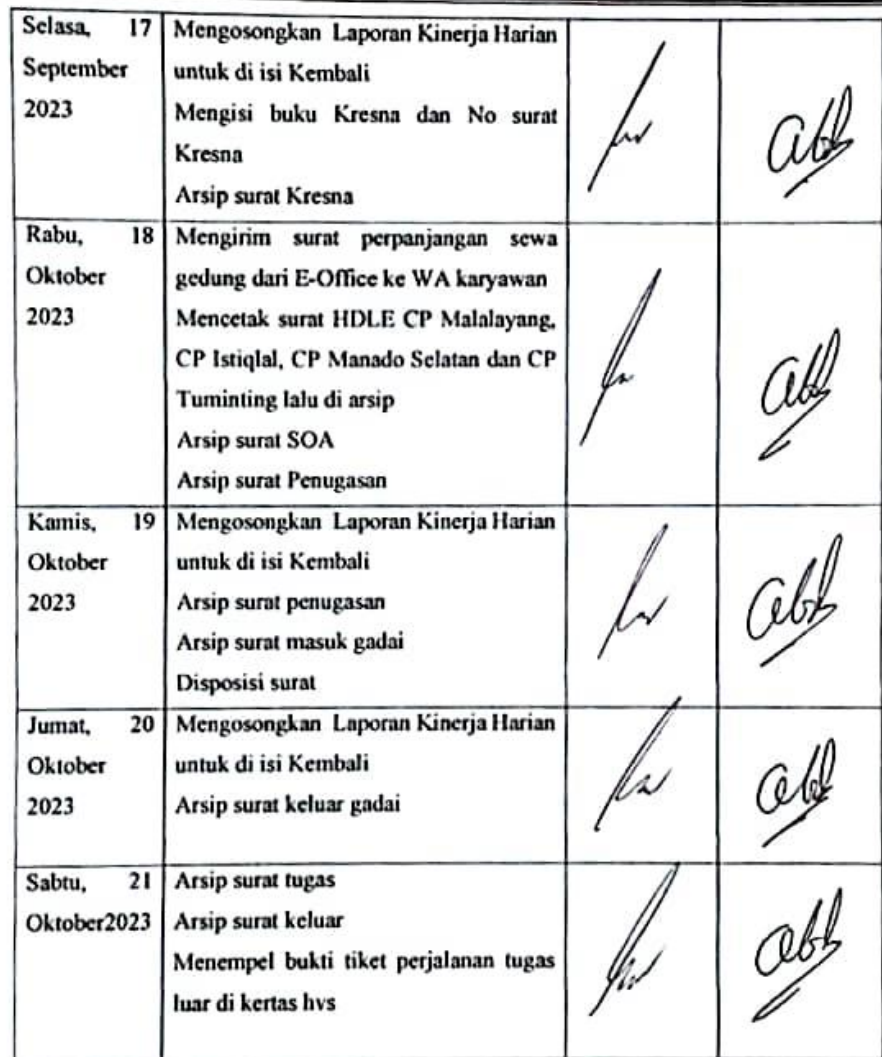 Selasa, 17
September
2023
Mengosongkan Laporan Kinerja Harian
untuk di isi Kembali
Mengisi buku Kresna dan No surat
Kresna
Arsip surat Kresna
Rabu, 18
Oktober
2023
Mengirim surat perpanjangan sewa
gedung dari E-Office ke WA karyawan
Mencetak surat HDLE CP Malalayang,
CP Istiqlal, CP Manado Selatan dan CP
Tuminting lalu di arsip
Arsip surat SOA
Arsip surat Penugasan
Kamis, 19
Oktober
2023
Mengosongkan Laporan Kinerja Harian
untuk di isi Kembali
Arsip surat penugasan
Arsip surat masuk gadai
Disposisi surat
Jumat, 20
Oktober
2023
Mengosongkan Laporan Kinerja Harian
untuk di isi Kembali
Arsip surat keluar gadai
Sabtu, 21
Oktober2023
Arsip surat tugas
Arsip surat keluar
Menempel bukti tiket perjalanan tugas
luar di kertas hvs